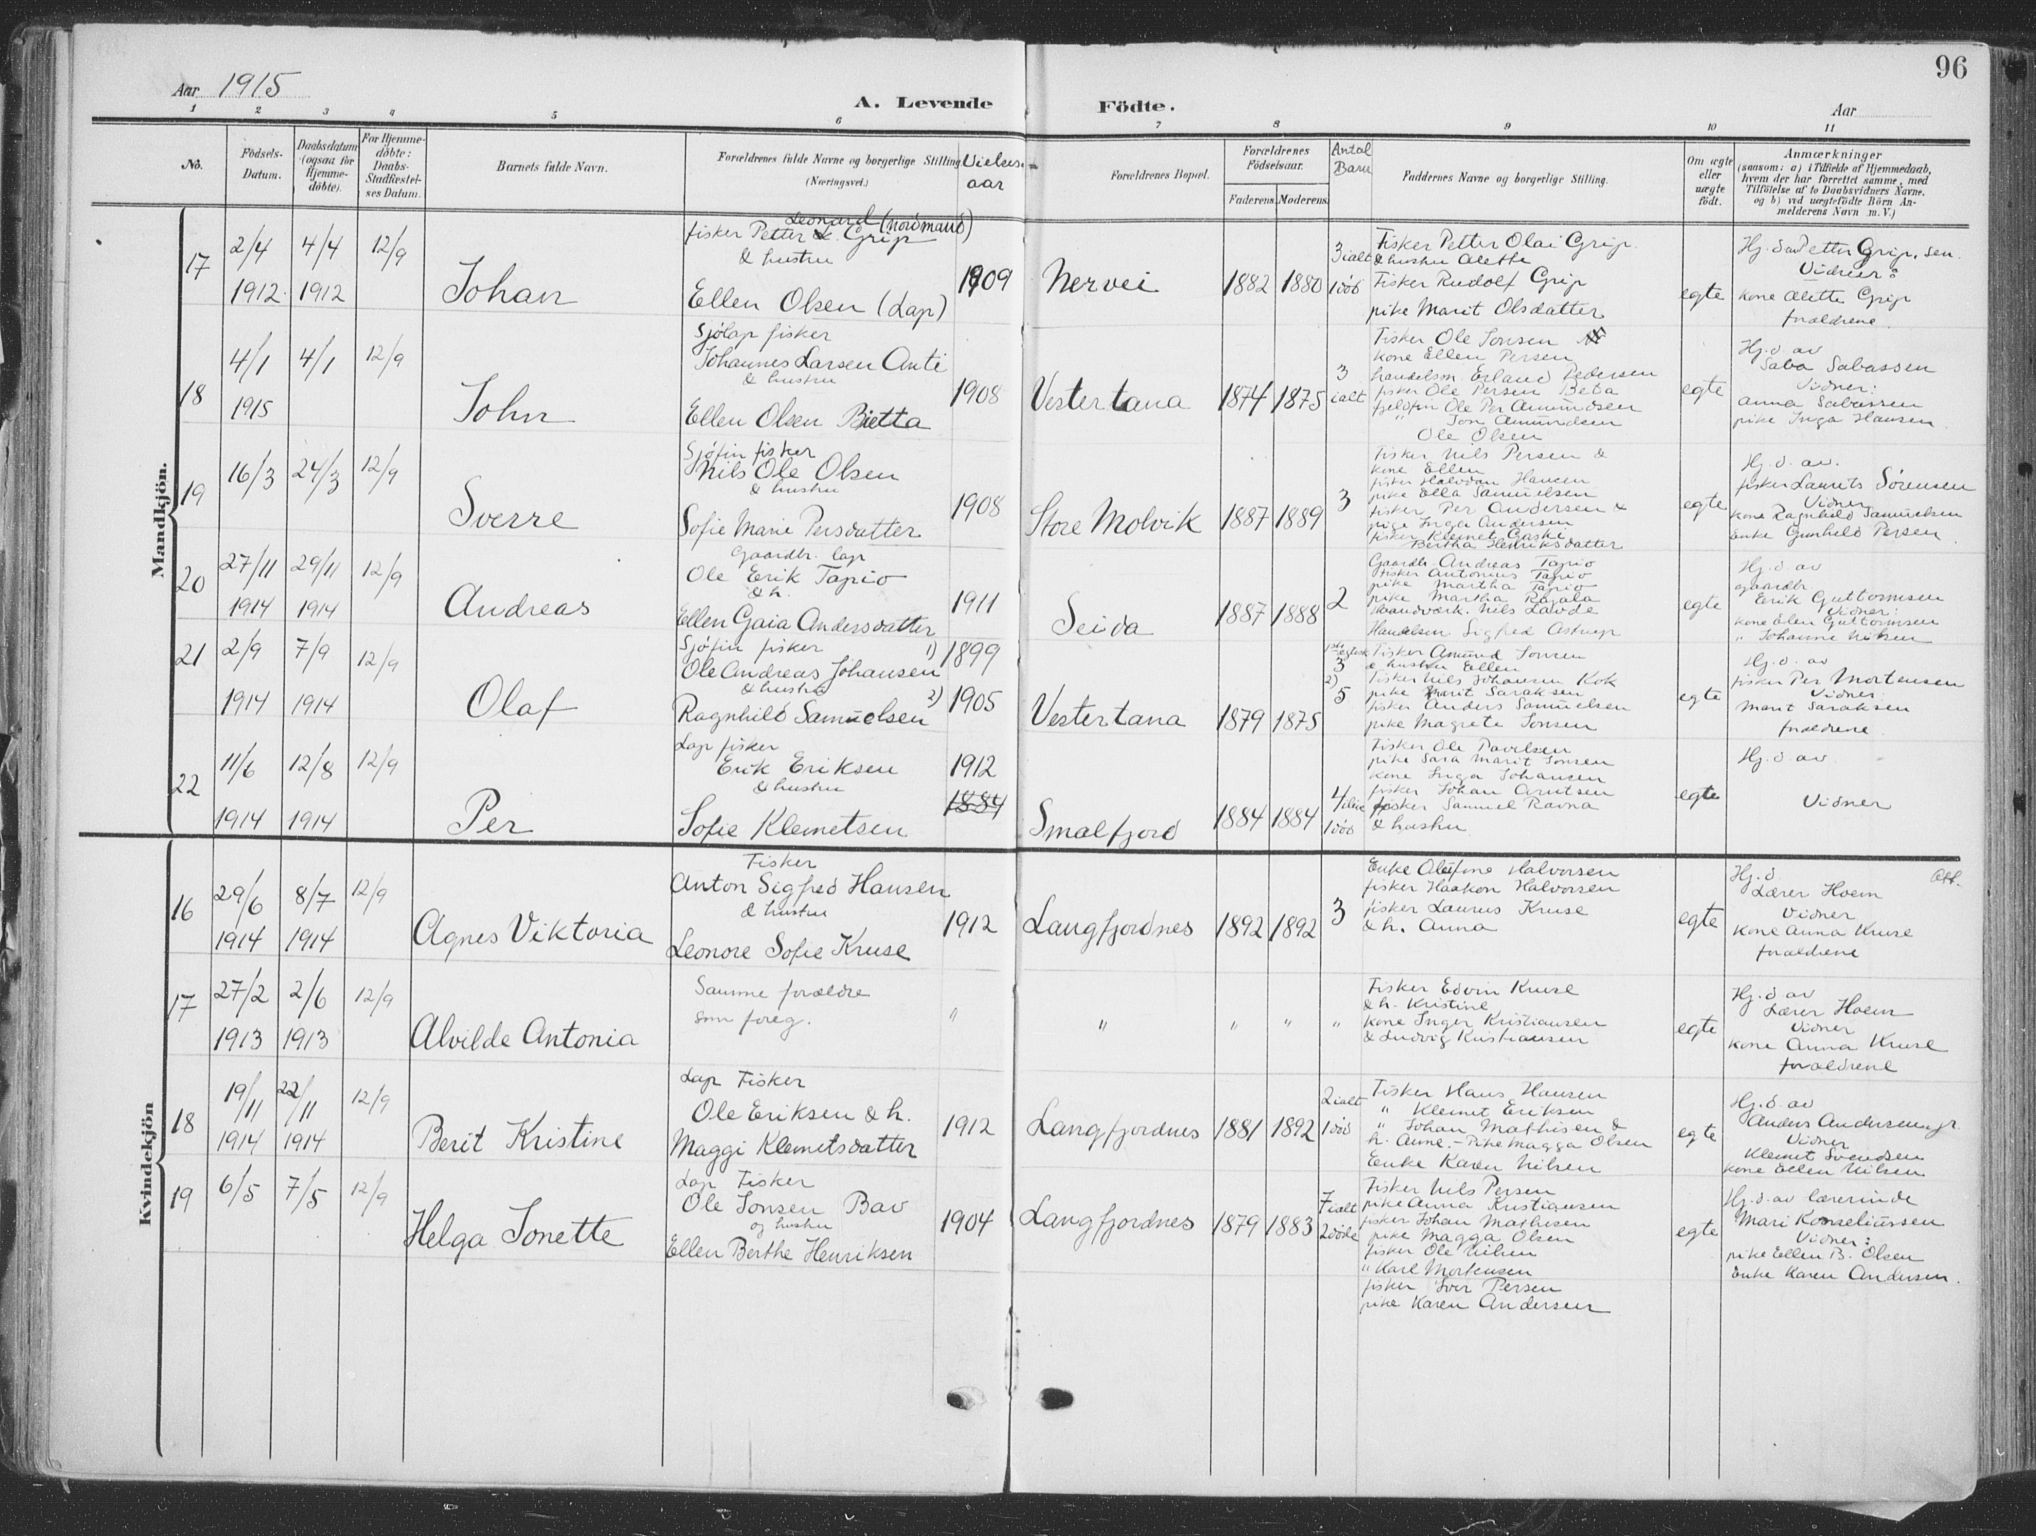 96
Aar 1915
A. Levende Födte.
Aar
1 2 3 4 5 6 7 8 9 10 11
No.
Födsels-
Datum.
Daabsdatum
(ogsaa for
Hjemme-
döbte).
For Hjemme-
döbte:
Daabs-
Stadfæstel-
ses Datum.
Barnets fulde Navn.
Forældrenes fulde Navne og borgerlige Stilling
(Næringsvei.)
Vielses-
aar
Forældrenes Bopæl.
Forældrenes
Födselsaar.
Faderens. Moderens.
Antal
Barn
Faddernes Navne og borgerlige Stilling.
Om ægte
eller
uægte
födt.
Anmærkninger
(saasom: a) i Tilfælde af Hjemmedaab,
hvem der har forrettet samme, med
Tilföielse af to Daabsvidners Navne,
og b) ved uægtefödte Börn An-
melderens Navn m. V.)
Mandkjön.
17
2/4
1912
4/4
1912
12/9
Johan
Leonard (nordmand)
fisker Petter L. Grip
& hustru
Ellen Olsen (Lap)
1909
Nervei
1882 1880
3 ialt
1 död
Fisker Petter Olai Grip
& hustru Alette
Fisker Rudolf Grip
pike Marit Olsdatter
egte
Hj. d. av Petter Grip, sen.
Vidner:
kone Alette Grip
forældrene
18
4/1
1915
4/1
12/9
John
Sjölap fisker
Johannes Larsen Anti
& hustru
Ellen Olsen Bietta
1908
Vestertana
1874 1875
3
ialt
Fisker Ole Jonsen
kone Ellen Persen
handelsm Erland Pedersen
fisker Ole Persen Beba
fjeldfin Ole Per Amundsen
" Jon Amundsen
Ole Olsen
egte
Hj. d. av
Saba Sabassen
Vidner:
Anna Sabassen
pike Inga Hansen
19
16/3
24/3
12/9
Sverre
Sjöfin fisker
Nils Ole Olsen
& hustru
Sofie Marie Persdatter
1908
Store Molvik
1887 1889
3
Fisker Nils Persen &
kone Ellen
fisker Halvdan Hansen
pike Ella Samuelsen
fisker Per Andersen &
pige Inga Andersen
fisker Klemet Gaski
Bertha Henriksdatter
egte
Hj. d. av.
fisker Laurits Sörensen
Vidner
kone Ragnhild Samuelsen
Enke Gunhild Persen
20
27/11
1914
29/11
1914
12/9
Andreas
Gaardbr. lap
Ole Erik Tapio
& h.
Ellen Gaia Andersdatter
1911
Seida
1887 1888
2
Gaardbr Andreas Tapio
fisker Antonius Tapio
pike Martha Tapio
pike Martha Rajala
Haandverk. Nils Lavde
Handelsm Sigfred Astrup
egte
Hj. d. av
gaardbr
Erik Guttormsen
Vidner:
kone Elen Guttormsen
" Johanne Nilsen
21
2/9
1914
7/9
1914
12/9
Olaf
Sjöfin fisker
Ole Andreas Johansen
& hustru
Ragnhild Samuelsen
1) 1899
2) 1905
Vestertana
1879 1875
3
2)
5
Fisker Amund Jonsen
& hustru Ellen
Fisker Nils Johansen Kok
pike Marit Saraksen
fisker Anders Samuelsen
pike Magrete Jonsen
egte
Hj. d. av
fisker Per Mortensen
Vidner:
Marit Saraksen
forældrene
22
11/6
1914
12/8
1914
12/9
Per
Lap fisker
Erik Eriksen
& hustru
Sofie Klemetsen
1912
1884
Smalfjord
1884 1884
4
1 död
Fisker Ole Pavelsen
pike Sara Marit Jonsen
kone Inga Johansen
fisker Johan Arntsen
fisker Samuel Ravna
& hustru
egte
Hj. d. av
Vidner
Kvindekjön
16
29/6
1914
8/7
1914
12/9
Agnes Viktoria
Fisker
Anton Sigfred Hansen
& hustru
Leonore Sofie Kruse
1912
Langfjordnes
1892 1892
3
Enke Olufine Halvorsen
fisker Haakon Halvorsen
fisker Laurus Kruse
& h. Anna
egte
Hj. d
Lærer Hoem
Vidner
kone Anna Kruse
forældrene
Att.
17
27/2
1913
2/6
1913
12/9
Alvilde Antonia
Samme forældre
som foreg.
" " " " "
Fisker Edvin Kruse
& h. Kristine
kone Inger Kristiansen
& Ludvig Kristiansen
egte
Hj. d av
Lærer Hoem
Vidner
kone Anna Kruse
forældrene
18
19/11
1914
22/11
1914
12/9
Berit Kristine
Lap Fisker
Ole Eriksen & h.
Maggi Klemetsdatter
1912
Langfjordnes
1881 1892
2 ialt
1 död
Fisker Hans Hansen
" Klemet Eriksen
" Johan Mathisen &
h. Anne. - Pike Magga Olsen
Enke Karen Nilsen
egte
Hj. d. av
Anders Andersen jr.
Vidner
Klemet Svendsen
kone Ellen Nilsen
19
6/5
7/5
12/9
Helga Jonette
Lap Fisker
Ole Jonsen Bav
og hustru
Ellen Berthe Henriksen
1904
Langfjordnes
1879 1883
7 ialt
2 döde
Fisker Nils Persen
pike Anna Kristiansen
fisker Johan Mathisen
pike Magga Olsen
fisker Ole Nilsen
" Karl Mortensen
fisker Iver Persen
pike Karen Andersen
egte
Hj. d. av lærerinde
Mari Konseliussen
Vidner:
pike Ellen B. Olsen
Enke Karen Andersen.